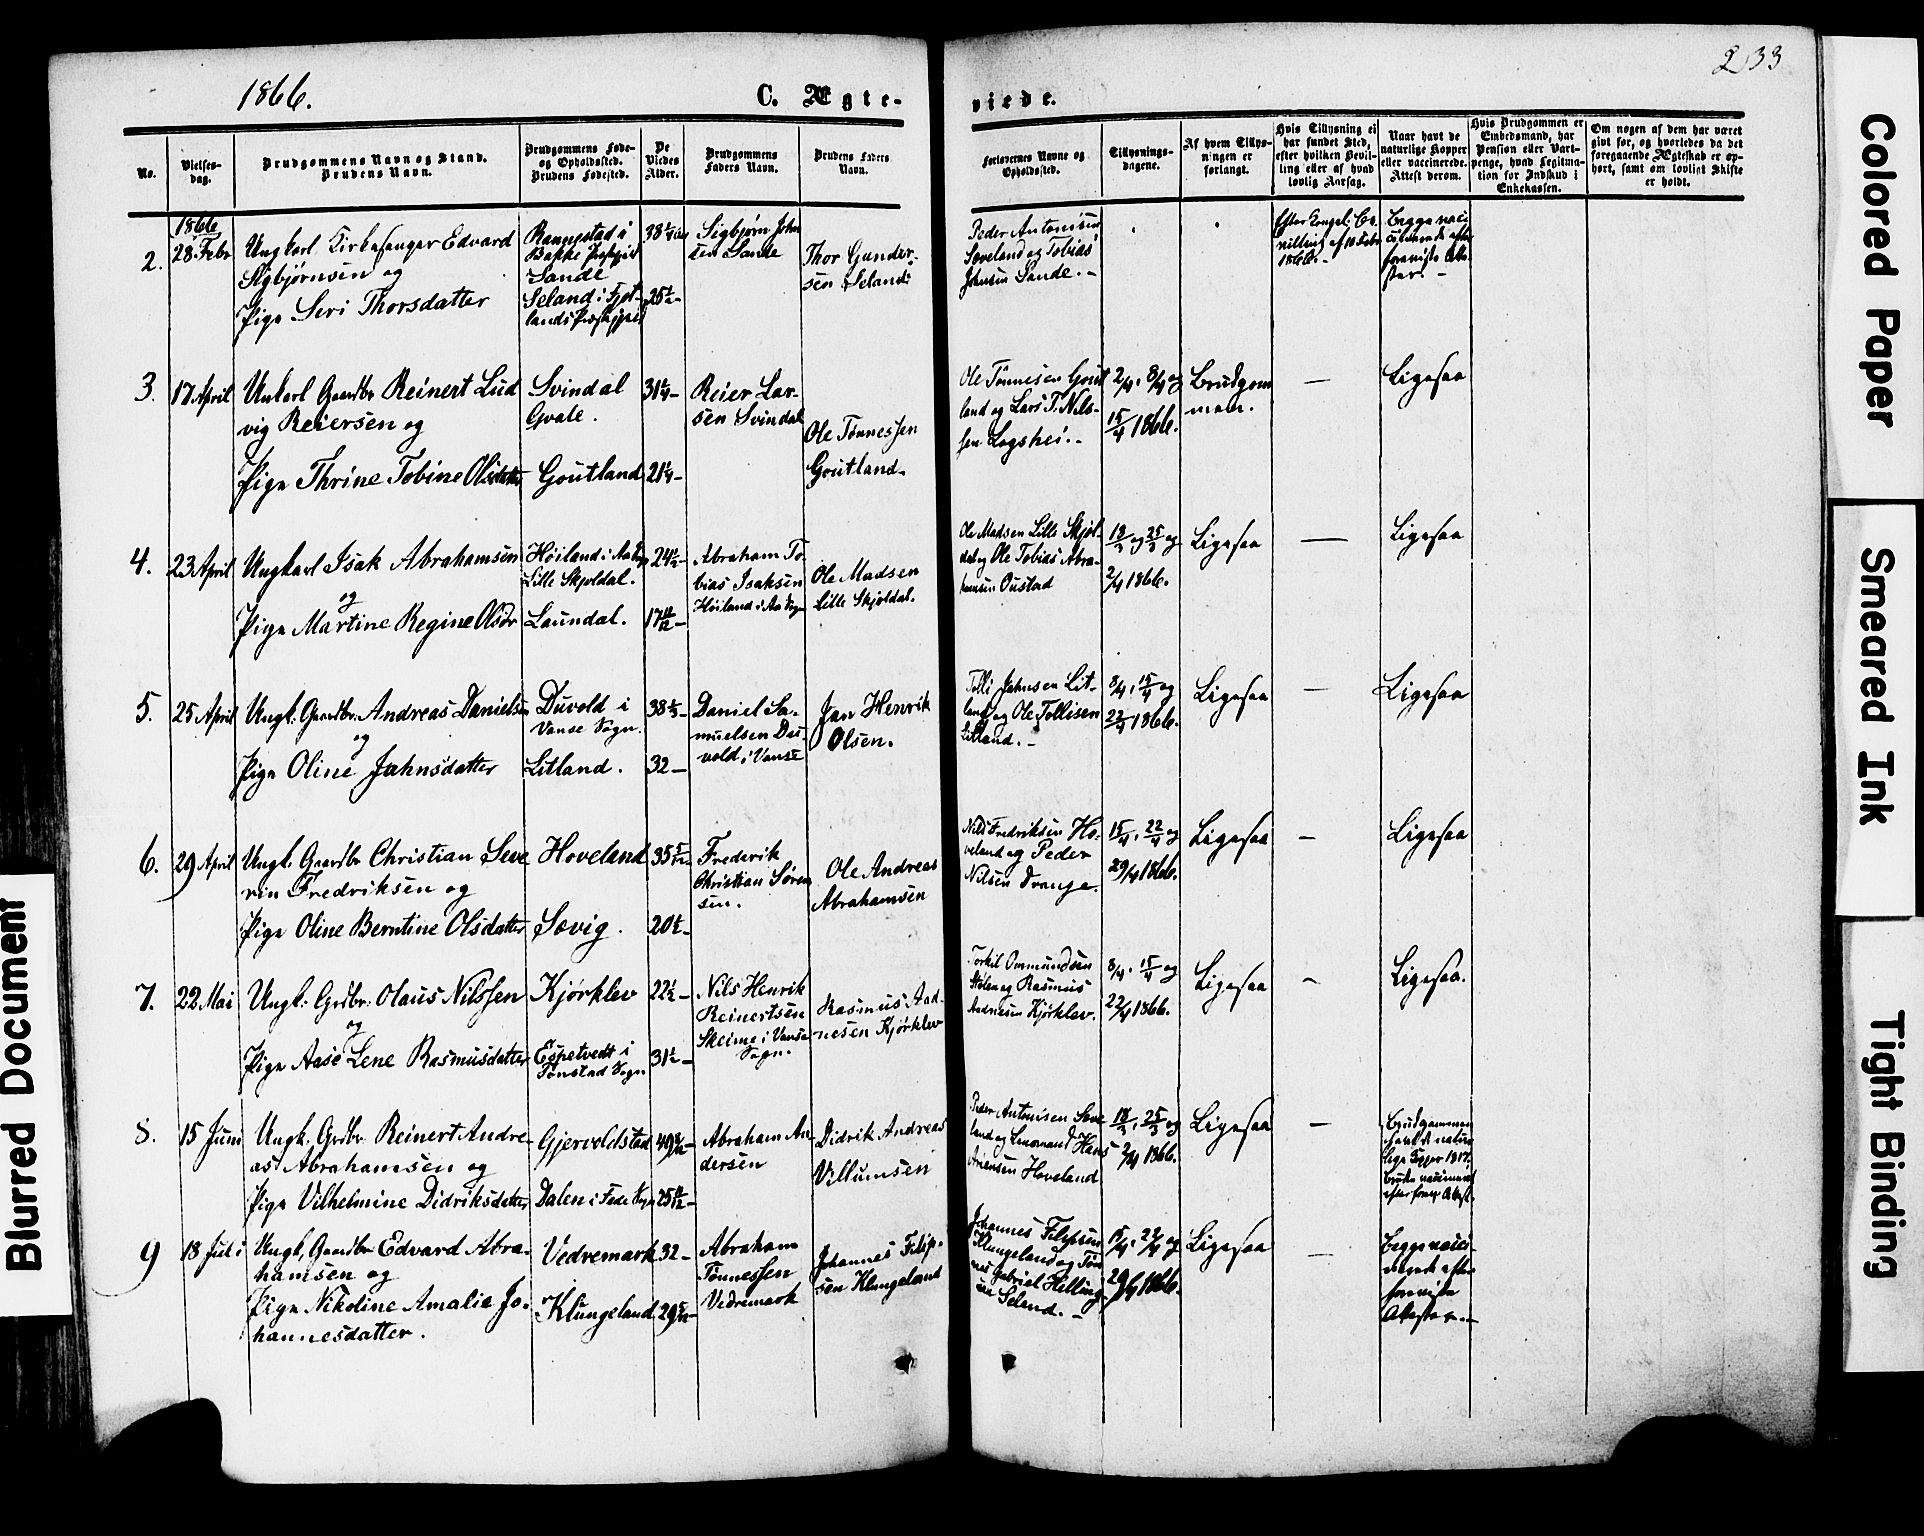 1866.
C. Ægte-
viede.
233
No.
Vielses-
dag.
Brudgommens Navn og Stand.
Brudens Navn.
Brudgommens Føde-
og Opholdssted.
Brudens Fødested.
De
Viedes
Alder.
Brudgommens
Faders Navn.
Brudens Faders
Navn.
Forlovernes Navne og
Opholdssted.
Tillysnings-
dagene.
Af hvem Tillys-
ningen er
forlangt.
Hvis Tillysning ei
har fundet Sted,
efter hvilken Bevil-
ling eller af hvad
lovlig Aarsag.
Naar havt de
naturlige Kopper
eller vaccinerede.
Attest derom.
Hvis Brudgommen er
Embedsmand, har
Pension eller Vart-
penge, hvad Legitima-
tion for Indskud i
Enkekassen.
Om nogen af dem har været
givt før, og hvorledes da det
foregaaende Ægteskab er op-
hørt, samt om lovligt Skifte
er holdt.
1866
2.
28 Febr
Ungkarl Kirkesanger Edvard
Sigbjørnsen og
Pige Siri Thorsdatter
Rannestad i
Bakke Præstgjeld
Sande
Seland i Fjot-
lands Præstgjeld
38
25½-
Sigbjørn John
sen Sande
Thor Gunder-
sen Seland
Peder Antonisen
Sæveland og Tobias
Johnsen Sande. -
Efter Kongel. Be-
villing af 10 Febr
1866. -
Begge vacci-
nerede efter
foreviste Atte-
ster. -
3.
17 April
Unkarl Gaardbr Reinert Lud
vig Reiersen og
Pige Thrine Tobine Olsdatter
Svindal
Qvale.
Goutland
31¼-
21¼-
Reier Lar-
sen Svindal
Ole Tønnessen
Goutland-
Ole Tønnesen Gout
land og Lars T. Nils-
sen Logshei. -
2/4, 8/4 og
15/4 1866.
Brudgom
men.
—
Ligesaa
4.
23 April
Ungkarl Isak Abrahamsen
og
Pige Martine Regine Olsdr
Høiland i Aa Sogn
Lille Skjoldal.
Laundal.
24½-
17 11/12-
Abraham To-
bias Isaksen
Høiland i Aa Sogn
Ole Madsen
Lille Skjoldal.
Ole Madsen Lille Skjol-
dal og Ole Tobias Abra-
hamsen Oustad
18/3 og 25/3 og
2/4 1866.
Ligesaa
—
Ligesaa
5.
25 April
Ungk. Gaardbr. Andreas Danielsen
og
Pige Oline Jahnsdatter
Duvold i
Vanse Sogn.
Litland.
38⅔-
32 -
Daniel Sa-
muelsen Du-
vold i Vanse
Jan Henrik
Olsen.
Tolli Jahnsen Lit-
land og Ole Tollisen
Litland. -
8/4, 15/4 og
22/4 1866.
Ligesaa
—
Ligesaa
6.
29 April
Ungk. Gaardbr Christian Seve
rin Fredriksen og
Pige Oline Berntine Olsdatter
Hoveland
Sævig.
35 5/12-
20½-
Frederik
Christian Søren
sen.
Ole Andreas
Abrahamsen
Nils Fredriksen Ho-
veland og Peder
Nilsen Drange.
15/4, 22/4 og
29/4 1866.
Ligesaa
—
Ligesaa
7.
22 Mai
Ungk. Grdbr. Olaus Nilssen
og
Pige Aase Lene Rasmusdatter
Kjørklev
Espetvedt i
Tonstad Sogn
22½-
31½-
Nils Henrik
Reinertsen
Skeime i Vanse
Sogn.
Rasmus Aad-
nesen Kjørklev
Torkil Ommundsen
Stølen og Rasmus
Aadnesen Kjørklev.
8/4, 15/4 og
22/4 1866.
Ligesaa
—
Ligesaa.
8.
15 Juni
Ungk. Grdbr. Reinert Andre-
as Abrahamsen og
Pige Vilhelmine Didriksdatter
Gjervoldstad
Dalen i Fede Sogn
49
25
Abraham An
dersen
Didrik Andreas
Villumsen
Peder Antonisen Sæve
land og Lensmand Hans
Ariensen Hoveland
18/3, 25/3 og
2/4 1866.
Ligesaa
—
Brudgommen
havt de natur
lige Kopper 1817.
Bruden vaccineret
efter forev. Attest.
9
18 Juli
Ungk. Gaardbr Edvard Abra-
hamsen og
Pige Nikoline Amalie Jo-
hannesdatter.
Vedremark
Klungeland
32 -
29
Abraham
Tønnessen
Vedremark
Johannes Filip-
sen Klungeland
Johannes Filipsen
Klungeland og Tøn
nes Gabriel Helling-
sen Seland. -
15/4, 22/4 og
29/4 1866.
Ligesaa
—
Begge vacci-
nerede efter
foreviste
Attester. -
Colored Paper
Smeared Ink
Tight Binding
Blurred Document